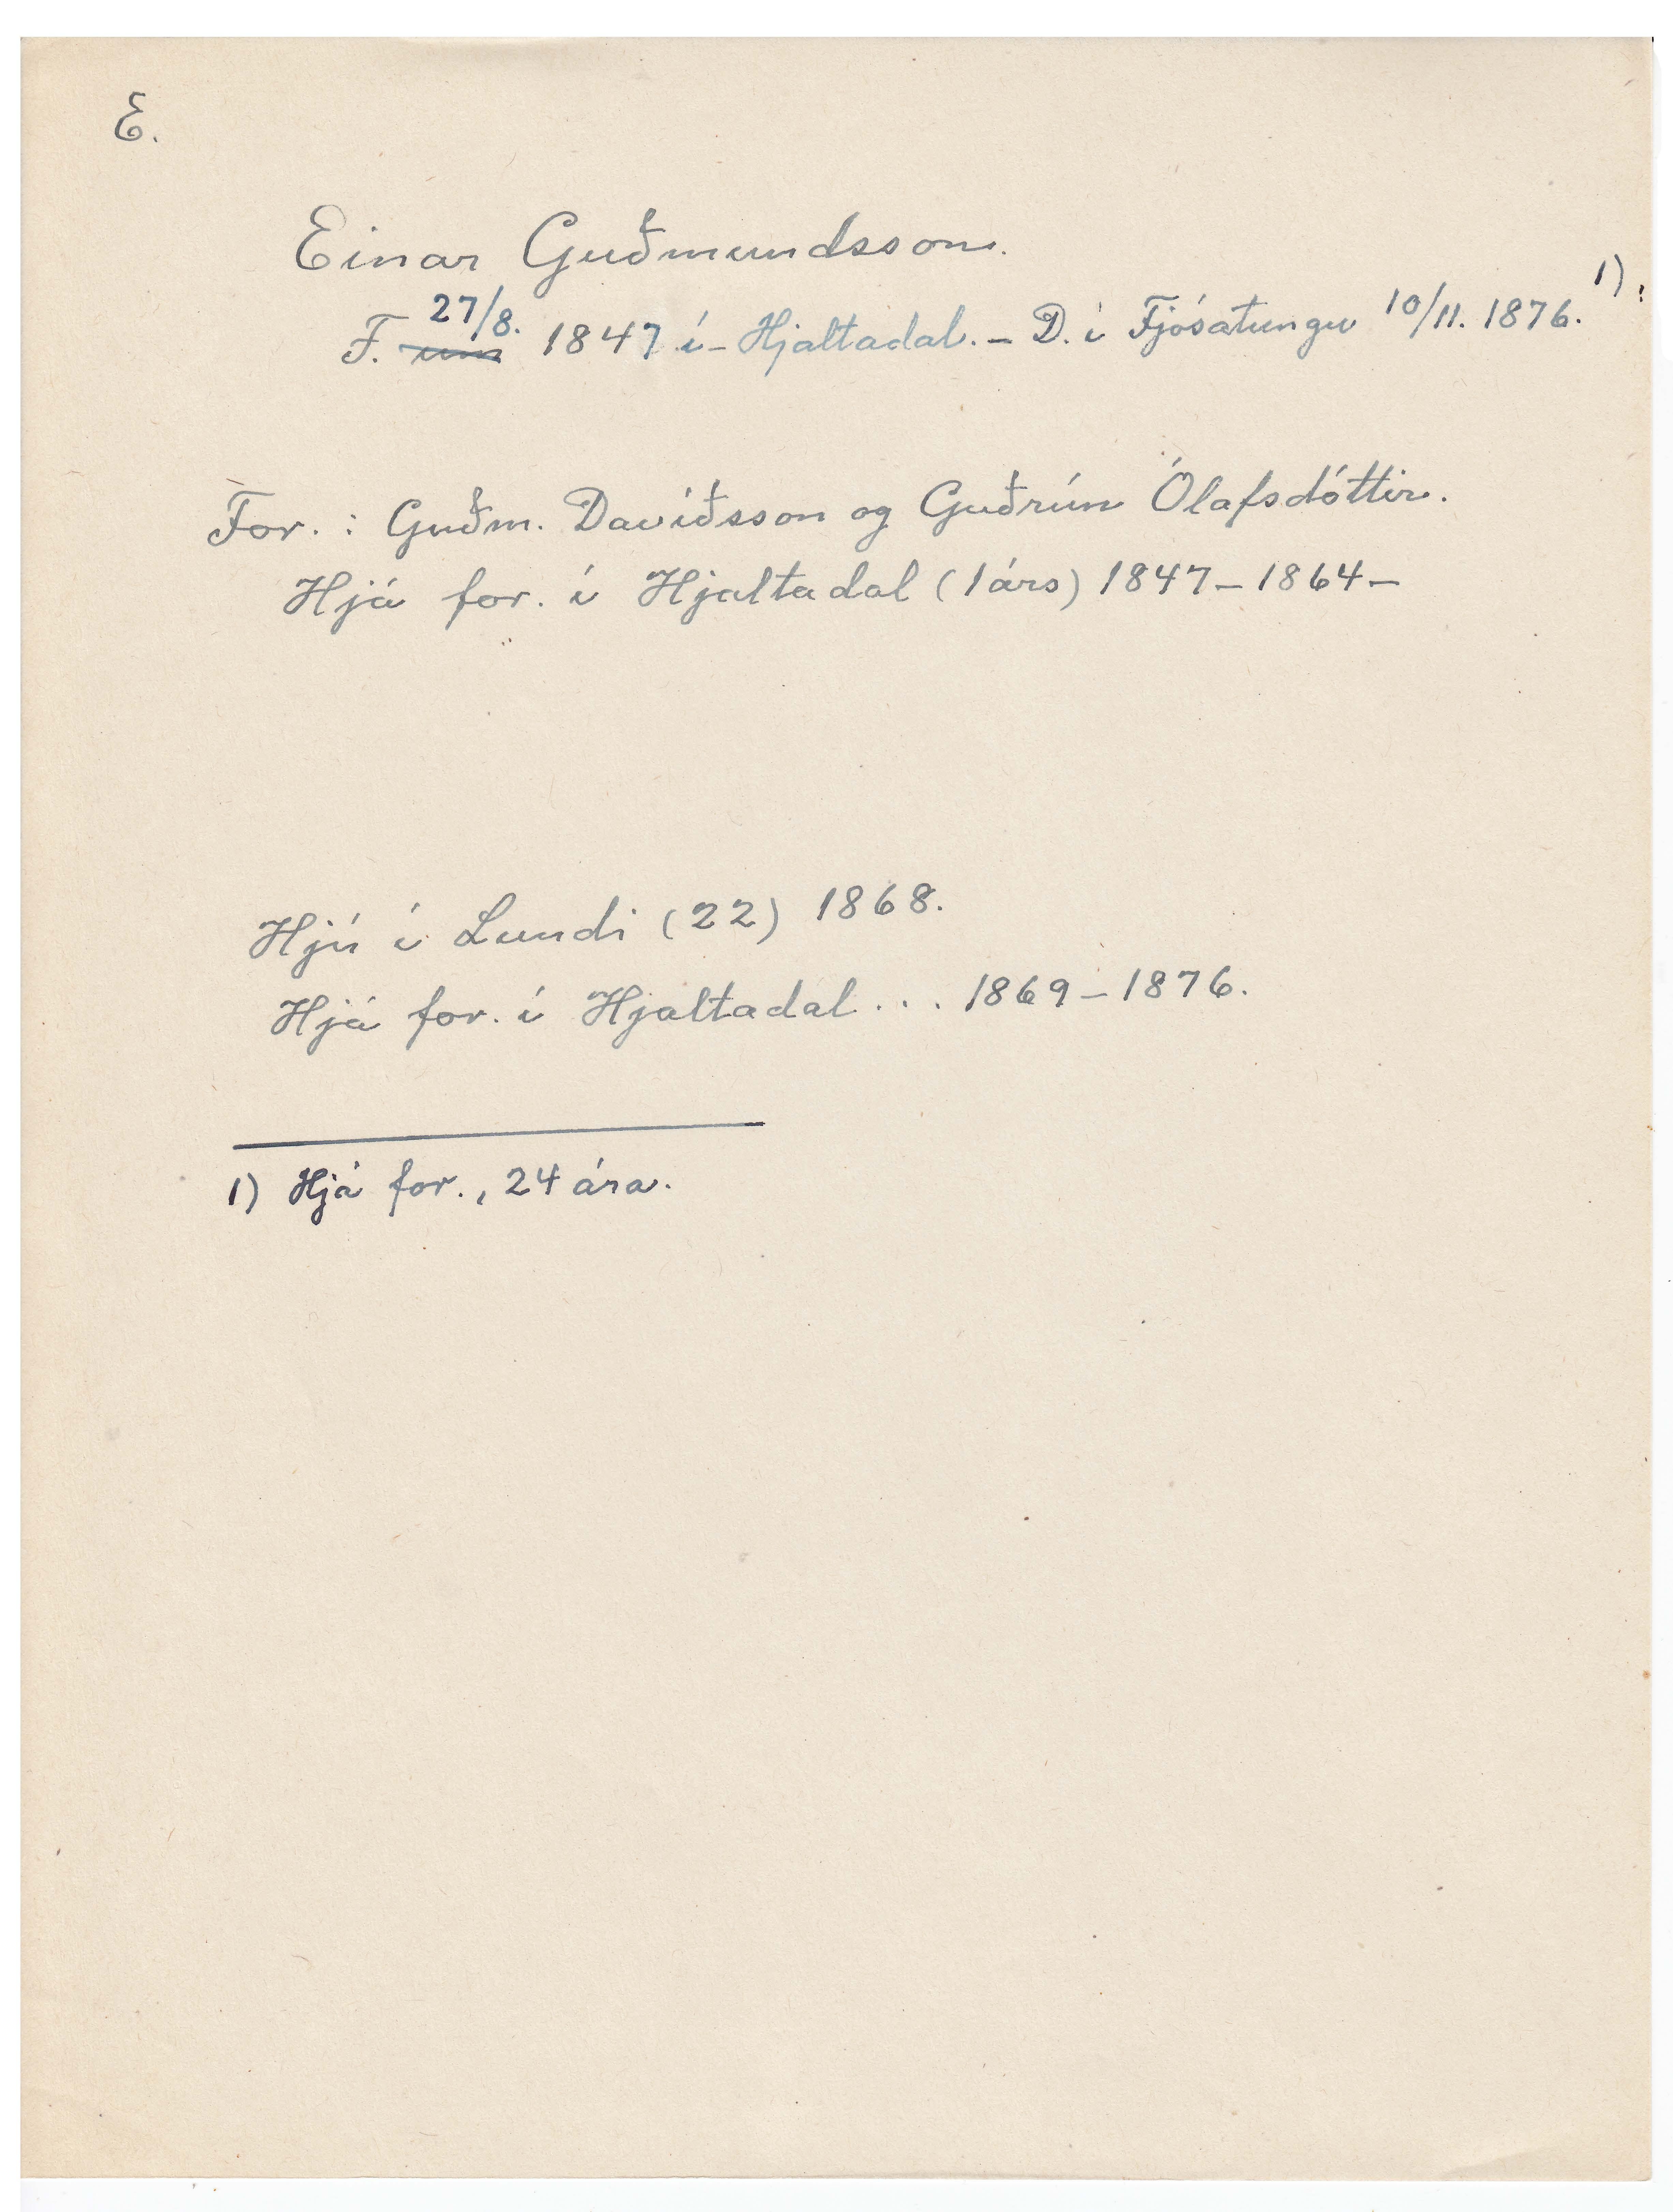 E.
Einar Guðmundsson.
F. um 27/8. 1847 í - Hjaltadal. - D. í Fjósatungu 10/11. 1876. 1)
For. : Guðm. Davíðsson og Guðrún Ólafsdóttir.
Hjá for. í Hjaltadal (1 árs) 1847 - 1864 -
Hjú í Lundi (22) 1868.
Hjá for. í Hjaltadal . . . 1869 - 1876.
1) Hjá for., 24 ára.